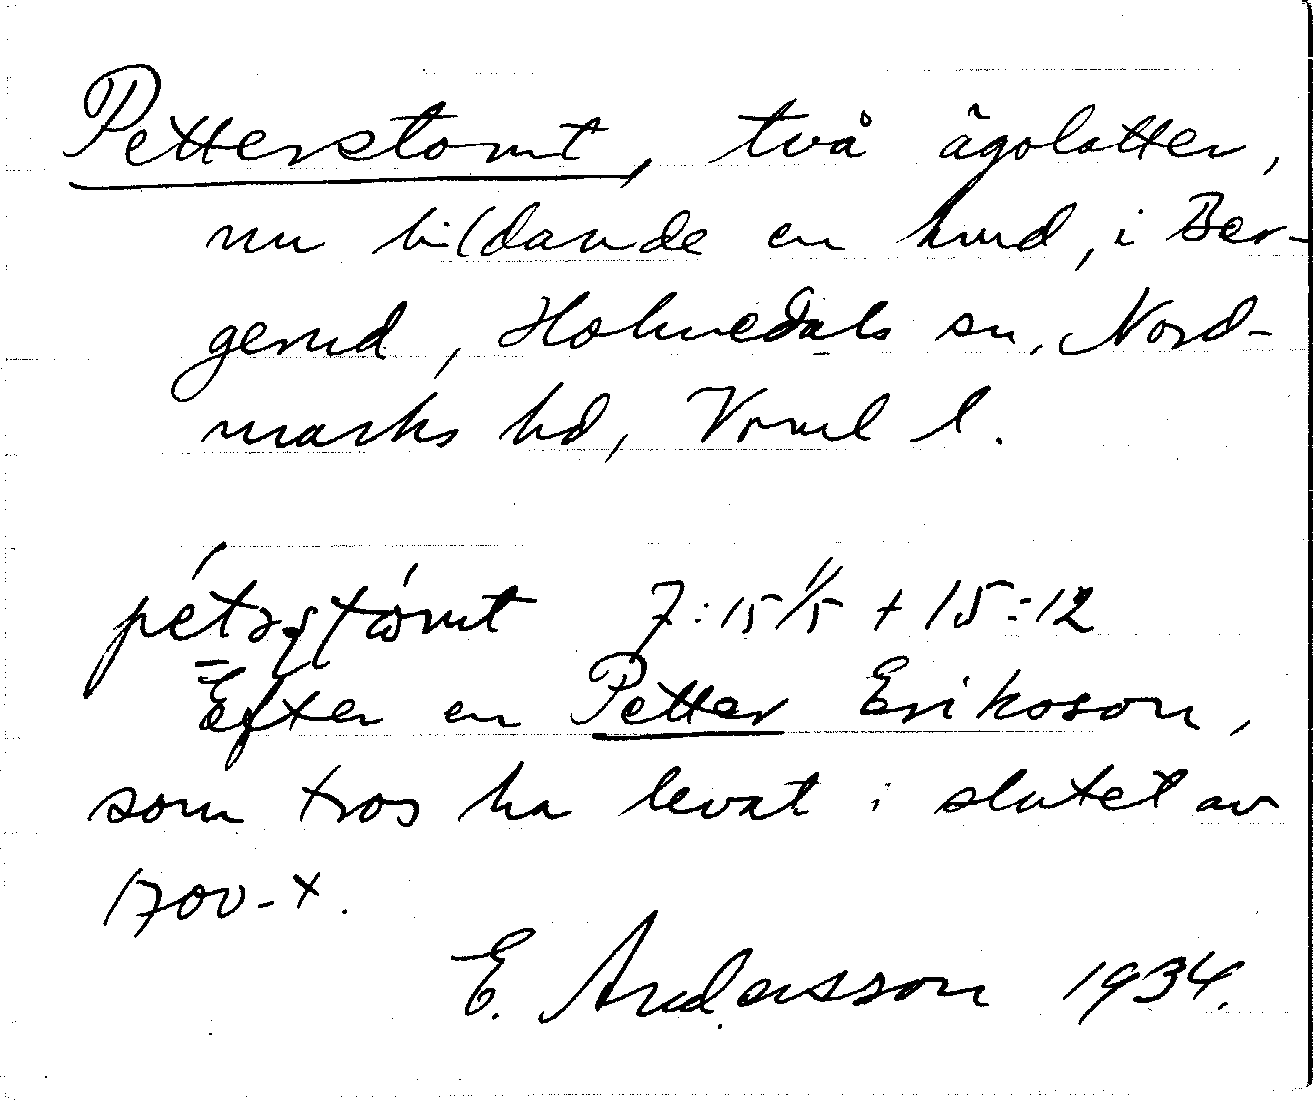 Petterstomt, två ägolotter,
nu bildande en lund, i Ber-
gerud, Holmedals sn, Nord-
marks hd, Vrml l.
7:15 1/5 + 15:12
Efter en Petter Eriksson,
som tros ha levat i slutet av
1700-t.
E. Andersson 1934.